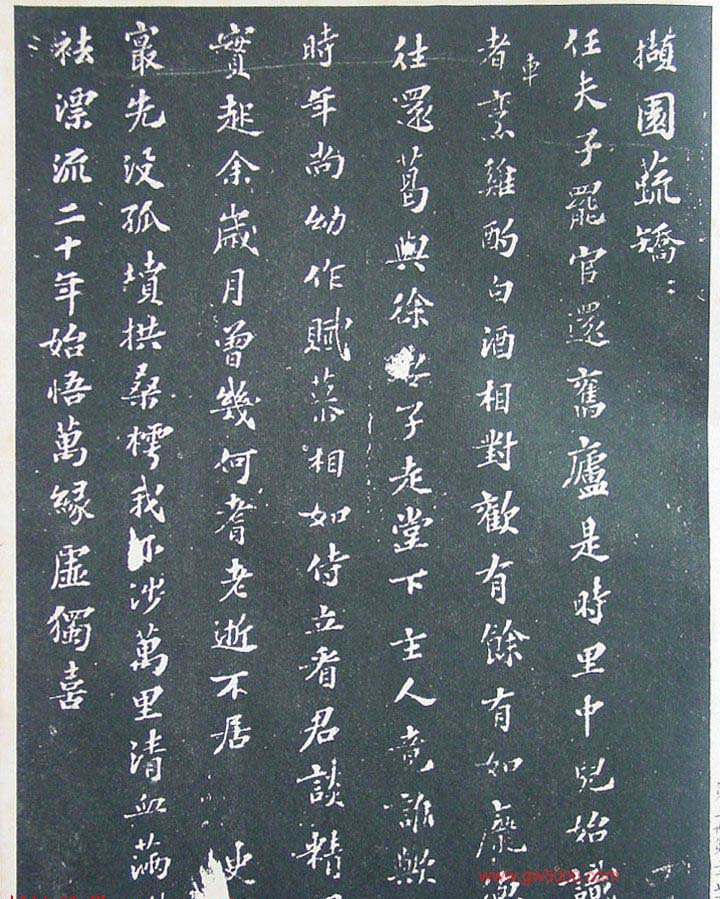 擷園蔬矯：
任夫子罷官還舊廬是時里中兒始識
者車烹雞酌白酒相對歡有餘有如龐
往還葛與徐妻子走堂下主人竟誰歟
時年尚幼作賦慕相如侍立看君談精
實起余歲月曾幾何耆老逝不居 史
最先沒孤墳拱桑樗我亦涉萬里清血滿
袪漂流二十年始悟萬緣虛獨喜
www.gw5000.com